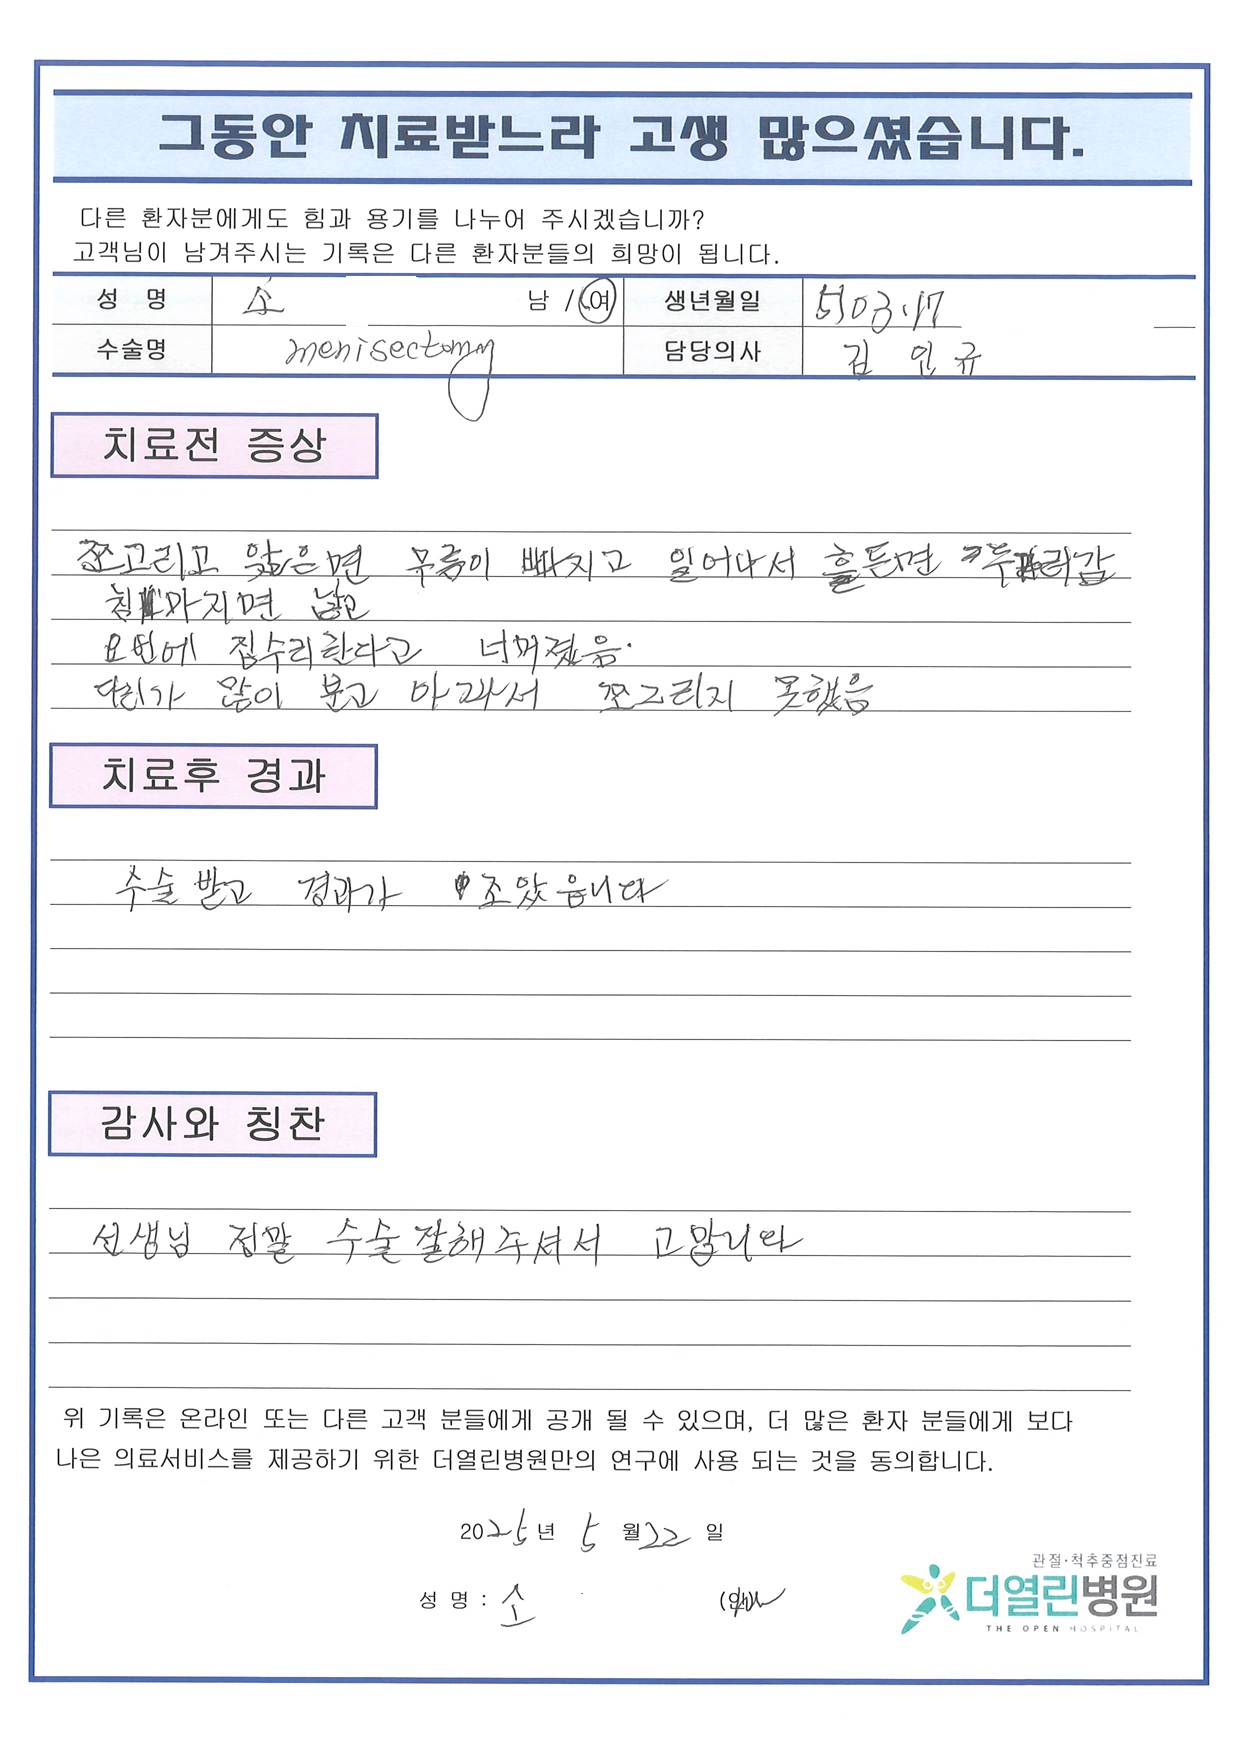 그동안 치료받느라 고생 많으셨습니다.
다른 환자분에게도 힘과 용기를 나누어 주시겠습니까?
고객님이 남겨주시는 기록은 다른 환자분들의 희망이 됩니다.
성 명 소 남 / 여 생년월일 5103.17
수술명 menisectomy 담당의사 김 인 규
치료전 증상
쪼고리고 앉은면 무릎이 빠지고 일어나서 흔든면
요번에 집수리한다고 너머졌음.
다리가 많이 붇고 아파서 쪼그리지 못했음
치료후 경과
수술받고 경과가 조았읍니다
감사와 칭찬
선생님 정말 수술잘해주셔서 고맙니다
위 기록은 온라인 또는 다른 고객 분들에게 공개 될 수 있으며, 더 많은 환자 분들에게 보다
나은 의료서비스를 제공하기 위한 더열린병원만의 연구에 사용 되는 것을 동의합니다.
2025년 5월22일
관절·척추중점진료
더열린병원
THE OPEN HOSPITAL
성 명 : 소